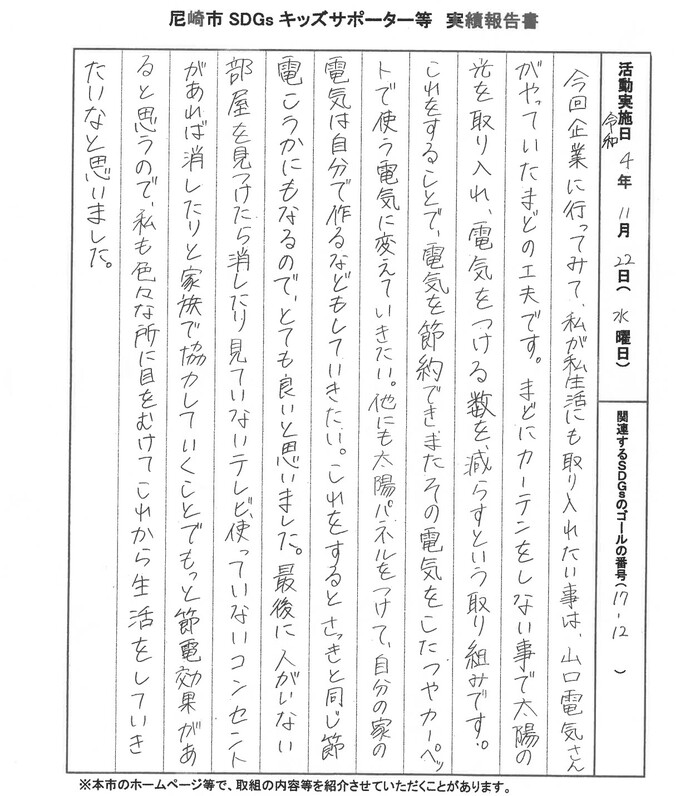 尼崎市 SDGs キッズサポーター等　実績報告書
活動実施日 令和 4 年 11 月 22 日( 水 曜日)
関連するSDGsのゴールの番号( 17-12 )
今回企業に行ってみて、私が私生活にも取り入れたい事は、山口電気さん
がやっていたまどの工夫です。まどにカーテンをしない事で太陽の
光を取り入れ、電気をつける数を、減らすという取り組みです。
これをすることで、電気を節約でき、またその電気をしたつやカーペッ
トで使う電気に変えていきたい。他にも太陽パネルをつけて、自分の家の
電気は自分で作るなどもしていきたい。これをするとさっきと同じ節
電こうかにもなるので、とても良いと思いました。最後に人がいない
部屋を見つけたら消したり見ていないテレビ、使っていないコンセント
があれば消したりと家族で協力していくことでもっと節電効果があ
ると思うので、私も色々な所に目をむけてこれから生活をしていき
たいなと思いました。
※本市のホームページ等で、取組の内容等を紹介させていただくことがあります。